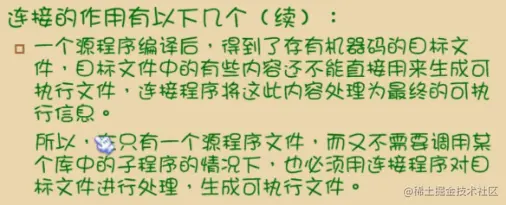 连接的作用有以下几个（续）：
一个源程序编译后，得到了存有机器码的目标文
件，目标文件中的有些内容还不能直接用来生成可
执行文件，连接程序将这此内容处理为最终的可执
行信息。
所以，在只有一个源程序文件，而又不需要调用某
个库中的子程序的情况下，也必须用连接程序对目
标文件进行处理，生成可执行文件。
@稀土掘金技术社区